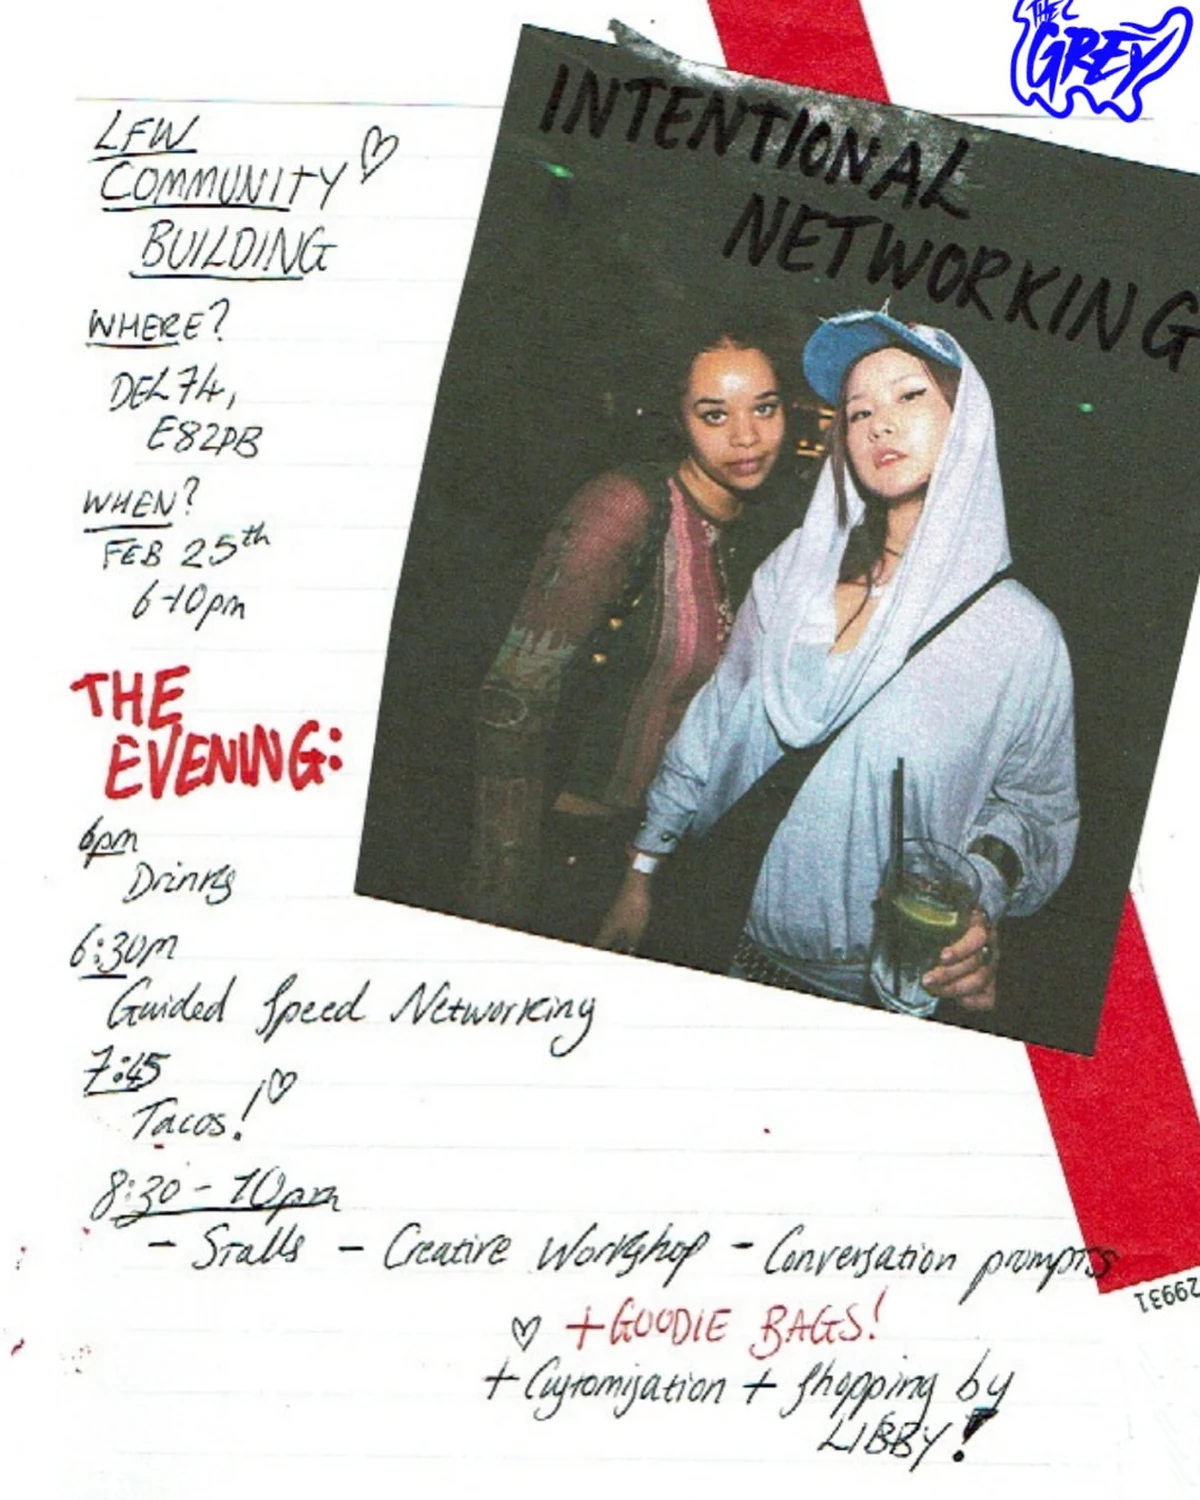 THE GREY
INTENTIONAL
NETWORKING
LFW
COMMUNITY
BUILDING
WHERE?
DEL74,
E82PB
WHEN?
FEB 25th
6-10pm
THE
EVENING:
6pm
Drinks
6:30m
Guided Speed Networking
7:45
Tacos!
8:30 - 10pm
- Stalls - Creative Workshop - Conversation prompts
+ GOODIE BAGS!
+ Customisation + Shopping by
LIBBY!
29931